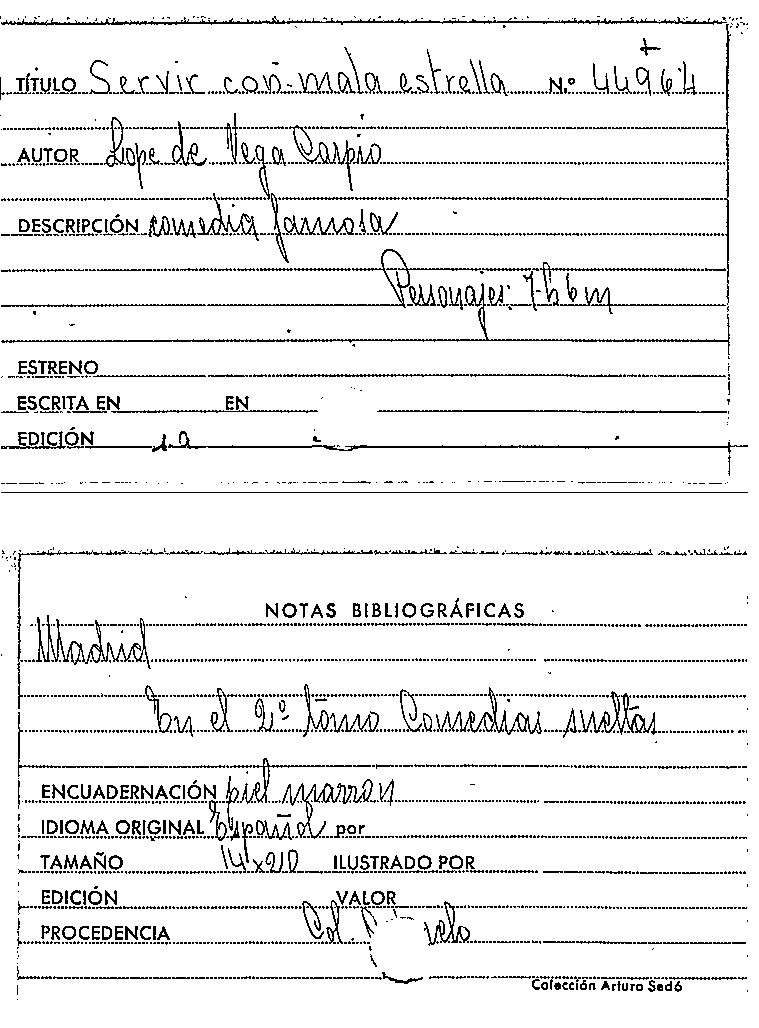 TÍTULO Servir con mala estrella N.º 44964
AUTOR Lope de Vega Carpio
DESCRIPCIÓN comedia famosa
Personajes: 7 h 6 m
ESTRENO
ESCRITA EN EN
EDICIÓN s.a
NOTAS BIBLIOGRÁFICAS
Madrid
En el 2º tomo Comedias sueltas
ENCUADERNACIÓN piel marron
IDIOMA ORIGINAL Español por
TAMAÑO 14x20 ILUSTRADO POR
EDICIÓN VALOR
PROCEDENCIA Col.
Colección Arturo Sedó